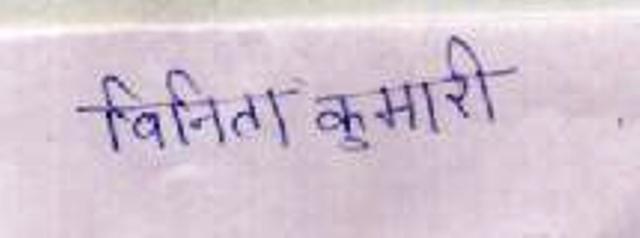 विनिता कुमारी